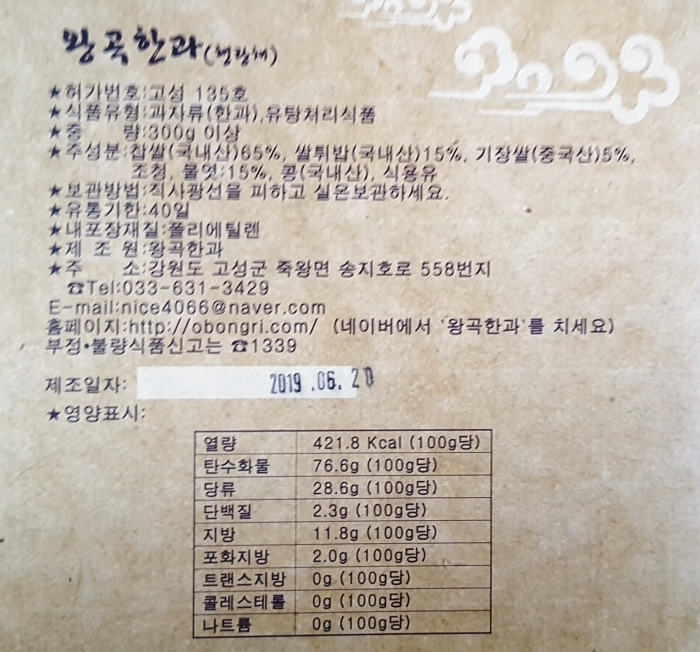 왕곡한과
★허가번호:고성 135호
★식품유형:과자류(한과),유탕처리식품
★중 량:300g 이상
★주성분:찹쌀(국내산)65%, 쌀튀밥(국내산)15%, 기장쌀(중국산)5%,
조청, 물엿:15%, 콩(국내산), 식용유
★보관방법:직사광선을 피하고 실온보관하세요.
★유통기한:40일
★내포장재질:폴리에틸렌
★제 조 원:왕곡한과
★주 소:강원도 고성군 죽왕면 송지호로 558번지
☎Tel:033-631-3429
E-mail:nice4066@naver.com
홈페이지:http://obongri.com/ (네이버에서 '왕곡한과'를 치세요)
부정•불량식품신고는 ☎1339
제조일자: 2019 .06. 20
★영양표시:
열량 421.8 Kcal (100g당)
탄수화물 76.6g (100g당)
당류 28.6g (100g당)
단백질 2.3g (100g당)
지방 11.8g (100g당)
포화지방 2.0g (100g당)
트랜스지방 0g (100g당)
콜레스테롤 0g (100g당)
나트륨 0g (100g당)